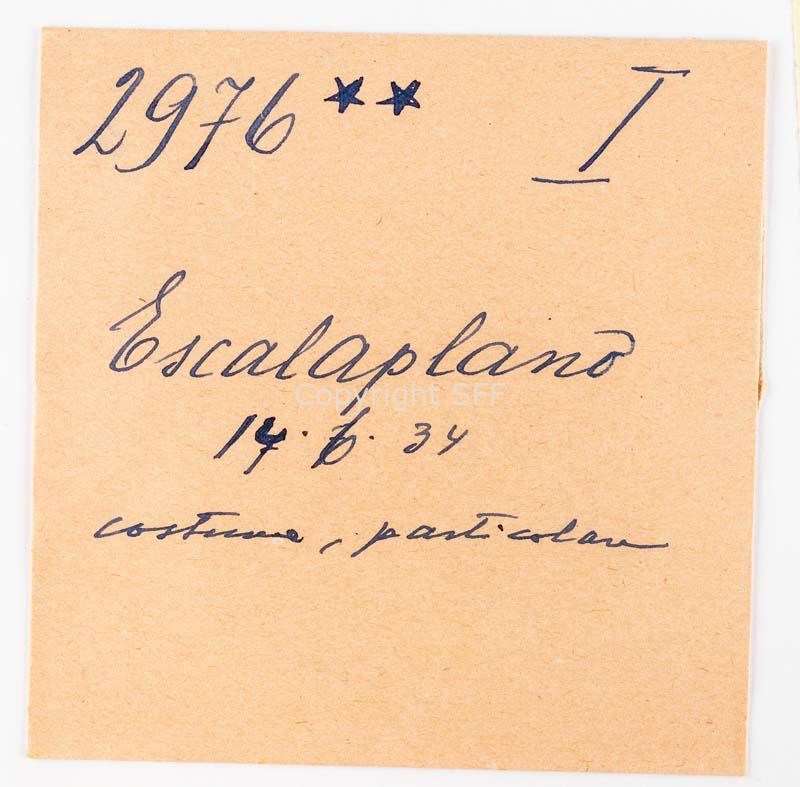 2976 ** I
Escalaplano
Copyright SFF
14.6.34
costume, particolare